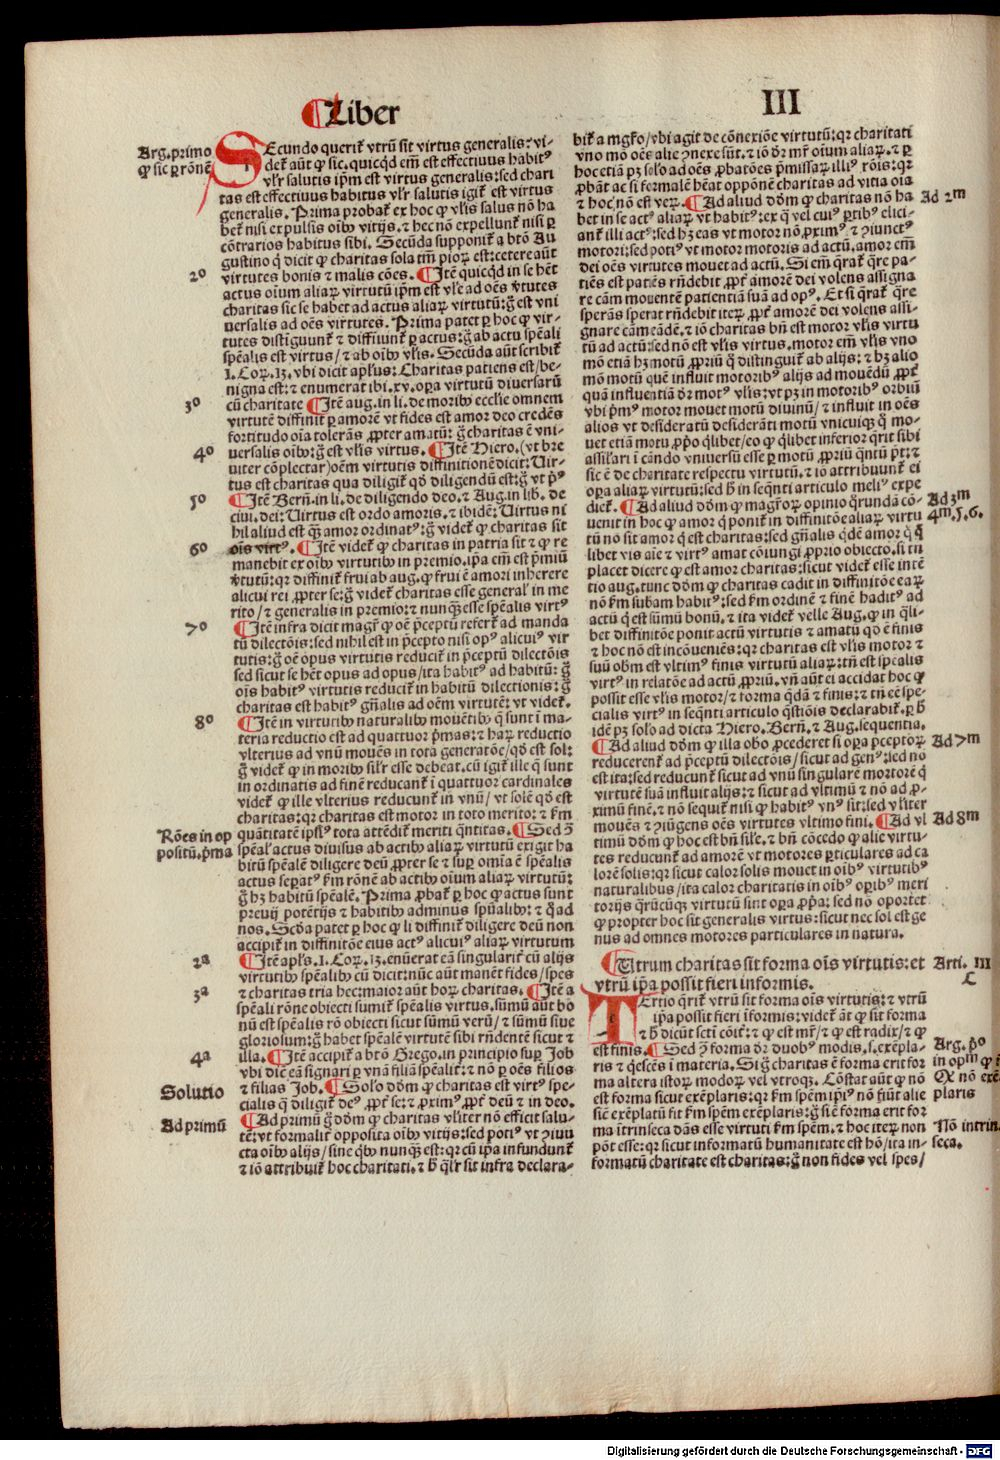 Liber
III
Arg. primo
ꝙ sic ꝑ rōnē
Secundo querit̄ vtrū sit virtus generalis: vi-
det̄ aūt ꝙ sic. quicqd em̄ est effectiuus habitꝰ
vl̄r salutis ip̄m est virtus generalis: sed chari
tas est effectiuus habitus vl̄r salutis igit̄ est virtus
generalis. Prima probat̄ ex hoc ꝙ vl̄is salus nō ha
bet̄ nisi expulsis oībꝰ vitijs. ⁊ hec nō expellunt̄ nisi ꝑ
cōtrarios habitus sibi. Secūda supponit̄ a btō Au
gustino q̄ dicit ꝙ charitas sola tm̄ pioꝝ est: cetere aūt
2º
virtutes bonis ⁊ malis cōes. ¶ Itē quicqd in se hēt
actus oīum aliaꝝ virtutū ip̄m est vl̄e ad oēs v̄tutes
charitas sic se habet ad actus aliaꝝ virtutū: g̊ est vni
uersalis ad oēs virtutes. Prima patet ꝑ hoc ꝙ vir-
tutes distīguunt̄ ⁊ diffiniunt̄ ꝑ actus: g̊ ab actu sp̄eali
sp̄ealis est virtus/ ⁊ ab oībꝰ vl̄is. Secūda aūt scribit̄
1. Coꝝ. 13. vbi dicit apl̄us: Charitas patiens est/ be-
nigna est: ⁊ enumerat ibi. xv. oꝑa virtutū diuersarū
3º
cū charitate ¶ Itē aug. in li. de moribꝰ eccl̄ie omnem
virtutē diffinit ꝑ amorē vt fides est amor deo credēs
fortitudo oīa tolerās ꝓpter amatū: g̊ charitas ē vni-
4º
uersalis oībꝰ: g̊ est vl̄is virtus. ¶ Itē Hiero. (vt bre
uiter cōplectar) oēm virtutis diffinitionē dicit: Uir-
tus est charitas qua diligit̄ qd̄ diligendū est: g̊ vt pꝰ
5º
¶ Itē Bern̄. in li. de diligendo deo. ⁊ Aug. in lib. de
ciui. dei: Uirtus est ordo amoris. ⁊ ibidē: Uirtus ni
hil aliud est q̄ꝫ amor ordinatꝰ: g̊ videt̄ ꝙ charitas sit
6º
oīs virtꝰ. ¶ Itē videt̄ ꝙ charitas in patria sit ⁊ ꝙ re
manebit ex oībꝰ virtutibꝰ in premio. ip̄a em̄ est p̄miū
v̄tutū: qr diffinit̄ frui ab aug. ꝙ frui ē amori inherere
alicui rei ꝓpter se: g̊ videt̄ charitas esse general̄ in me
rito/ ⁊ generalis in premio: ⁊ nunq̄ꝫ esse sp̄ealis virtꝰ
7º
¶ Itē infra dicit magr̄ ꝙ oē p̄ceptū refert̄ ad manda
tū dilectōis: sed nihil est in p̄cepto nisi opꝰ alicuiꝰ vir
tutis: g̊ oē opus virtutis reducit̄ in p̄ceptū dilectōis
sed sicut se hēt opus ad opus/ ita habitꝰ ad habitū: g̊
oīs habitꝰ virtutis reducit̄ in habitū dilectionis: g̊
charitas est habitꝰ gn̄alis ad oēm virtutē: vt videt̄.
8º
¶ Itē in virtutibꝰ naturalibꝰ mouētibꝰ q̄ sunt ī ma-
teria reductio est ad quattuor p̄mas: ⁊ haꝝ reductio
vlterius ad vnū mouēs in tota generatōe/ qd̄ est sol:
g̊ videt̄ ꝙ in moribꝰ sil̄r esse debeat. cū igit̄ ille q̄ sunt
in ordinatis ad finē reducant̄ ī quattuor cardinales
videt̄ ꝙ ille vlterius reducunt̄ in vnū/ vt solē qd̄ est
charitas: qr charitas est motor in toto merito: ⁊ ẜm
Rōes in op
positū. p̄ma
quātitatē ipsiꝰ tota attēdit̄ meriti q̄ntitas. ¶ Sed ꝯ̄
sp̄eal̄ actus diuisus ab actibꝰ aliaꝝ virtutū exigit ha
bitū sp̄ealē diligere deū ꝓpter se ⁊ suꝑ omīa ē sp̄ealis
actus seꝑatꝰ ẜm rōnē ab actibꝰ oīum aliaꝝ virtutū:
g̊ hꝫ habitū sp̄ealē. Prima ꝓbat̄ ꝑ hoc ꝙ actus sunt
preuij potētijs ⁊ habitibꝰ adminus sp̄ualibꝰ: ⁊ q̊ad
nos. Scd̄a patet ꝑ hoc ꝙ li diffinit̄ diligere deū non
accipit̄ in diffinitōe eius actꝰ alicuiꝰ aliaꝝ virtutum
2ª
¶ Itē apl̄s. 1. Coꝝ. 13. enūerat eā singularit̄ cū alijs
virtutibꝰ sp̄ealibꝰ cū dicit: nūc aūt manēt fides/ spes
3ª
⁊ charitas tria hec: maior aūt hoꝝ charitas. ¶ Itē a
sp̄eali rōne obiecti sumit̄ sp̄ealis virtus. sūmū aūt bo
nū est sp̄ealis rō obiecti sicut sūmū verū/ ⁊ sūmū siue
gloriosum: g̊ habet sp̄ealē virtutē sibi rn̄dentē sicut ⁊
4ª
illa. ¶ Itē accipit̄ a btō Grego. in principio suꝑ Job
vbi dicit eā signari ꝑ vnā filiā sp̄ealit̄: ⁊ nō ꝑ oēs filios
Solutio
⁊ filias Job. ¶ Solō dd̄m ꝙ charitas est virtꝰ spe-
cialis q̄ diligit̄ deꝰ ꝓpt̄ se: ⁊ ꝓximꝰ ꝓpt̄ deū ⁊ in deo.
Ad primū
¶ Ad primū g̊ dd̄m ꝙ charitas vl̄iter nō efficit salu-
tē: vt formalit̄ opposita oībꝰ vitijs: sed potiꝰ vt ꝯiuu
cta oībꝰ alijs/ sine qbꝰ nunq̄ꝫ est: qr cū ip̄a infundunt̄
⁊ iō attribuit̄ hoc charitati. ⁊ h̄ ql̄r sit infra declara-
bit̄ a mgr̄o/ vbi agit de cōnexiōe virtutū: qr charitati
vno mō oēs alie ꝯnexe sūt. ⁊ iō dr̄ mr̄ oīum aliaꝝ. ⁊ ꝑ
hoc etiā pꝫ solō ad oēs ꝓbatōes p̄missaꝝ illiꝰ rōis: qr
ꝓbāt ac si formalē hēat oppōnē charitas ad vitia oīa
Ad 2m
⁊ hoc nō est veꝝ. ¶ Ad aliud dd̄m ꝙ charitas nō ha
bet in se actꝰ aliaꝝ vt habitꝰ: ex q̄ vel cuiꝰ ꝑtibꝰ elici-
ant̄ illi actꝰ: sed hꝫ eas vt motor nō ꝓximꝰ ⁊ ꝯiunctꝰ
motori: sed potiꝰ vt motor motoris ad actū. amor em̄
dei oēs virtutes mouet ad actū. Si em̄ q̄rat̄ q̄re pa-
tiēs est patiēs rn̄debit ꝓpt̄ amorē dei volens assigna
re cām mouentē patientiā suā ad opꝰ. Et si q̄rat̄ q̄re
sperās sperat rn̄debit iteꝝ ꝓpt̄ amorē dei volens assi-
gnare cām eādē. ⁊ iō charitas bn̄ est motor vl̄is virtu
tū ad actū: sed nō est vl̄is virtus. motor em̄ vl̄is vno
mō etiā hꝫ motū ꝓpriū q̄ distinguit̄ ab alijs: ⁊ hꝫ alio
mō motū quē influit motoribꝰ alijs ad mouēdū ꝓpt̄
quā influentiā dr̄ motꝰ vl̄is: vt pꝫ in motoribꝰ orbiū
vbi p̄mꝰ motor mouet motū diuinū/ ⁊ influit in oēs
alios vt desideratū desiderāti motū vnicuiqꝫ q̄ mo-
uet etiā motu ꝓpo q̄libet/ eo ꝙ q̄libet inferior q̄rit sibi
assil̄ari ī cāndo vniuersū esse ꝑ motū ꝓpriū q̄ntū pt̄: ⁊
sic ē de charitate respectu virtutū. ⁊ iō attribuunt̄ ei
oꝑa aliaꝝ virtutū: sed h̄ in seqn̄ti articulo meliꝰ expe
Ad 3m
diet̄. ¶ Ad aliud dd̄m ꝙ magr̄oꝝ opinio q̄rundā cō-
4m. 5. 6.
uenit in hoc ꝙ amor q̄ ponit̄ in diffinitōe aliaꝝ virtu
tū nō sit amor q̄ est charitas: sed gn̄alis qdē amor q̄ q̄
libet vis aīe ⁊ virtꝰ amat cōiungi ꝓprio obiecto. si tn̄
placet dicere ꝙ est amor charitas: sicut videt̄ esse intē
tio aug. tunc dd̄m ꝙ charitas cadit in diffinitōe eaꝝ
nō ẜm subam habitꝰ: sed ẜm ordinē ⁊ finē habitꝰ ad
actū q̄ est sūmū bonū. ⁊ ita videt̄ velle Aug. ꝙ in q̄li-
bet diffinitōe ponit actū virtutis ⁊ amatū qd̄ ē finis
⁊ hoc nō est incōueniēs: qr charitas est vl̄is motor ⁊
suū obm̄ est vltimꝰ finis virtutū aliaꝝ: tn̄ est sp̄ealis
virtꝰ in relatōe ad actū ꝓpriū. vn̄ aūt ei accidat hoc ꝙ
possit esse vl̄is motor/ ⁊ forma q̄dā ⁊ finis: ⁊ tn̄ eē spe-
cialis virtꝰ in seqn̄ti articulo qstiōis declarabit̄. ꝑ h̄
idē pꝫ solō ad dicta Hiero. Bern̄. ⁊ Aug. sequentia.
Ad 7m
¶ Ad aliud dd̄m ꝙ illa obō ꝓcederet si oꝑa p̄ceptoꝝ
reducerent̄ ad p̄ceptū dilectōis/ sicut ad genꝰ: sed nō
est ita: sed reducunt̄ sicut ad vnū singulare mortorē q̄
virtutē suā influit alijs: ⁊ sicut ad vltimū ⁊ nō ad ꝓ-
ximū finē. ⁊ nō sequit̄ nisi ꝙ habitꝰ vnꝰ sit: sed vl̄iter
Ad 8m
mouēs ⁊ ꝯiūgens oēs virtutes vltimo fini. ¶ Ad vl
timū dd̄m ꝙ hoc est bn̄ sil̄e. ⁊ bn̄ cōcedo ꝙ alie virtu-
tes reducunt̄ ad amorē vt motores ꝑticulares ad ca
lorē solis: qr sicut calor solis mouet in oībꝰ virtutibꝰ
naturalibus/ ita calor charitatis in oībꝰ oꝑibꝰ meri
torijs q̄rūcūqꝫ virtutū sint oꝑa ꝓp̄a: sed nō oportet
ꝙ propter hoc sit generalis virtus: sicut nec sol est ge
nus ad omnes motores particulares in natura.
Arti. III
¶ Utrum charitas sit forma oīs virtutis: et
vtrū ip̄a possit fieri informis.
C
Tertio q̄rit̄ vtrū sit forma oīs virtutis: ⁊ vtrū
ip̄a possit fieri īformis: videt̄ āt ꝙ sit forma
⁊ h̄ dicūt scti cōit̄: ⁊ ꝙ est mr̄/ ⁊ ꝙ est radix/ ⁊ ꝙ
Arg. p̄º
est finis. ¶ Sed ꝯ̄ forma dr̄ duobꝰ modis. s. exēpla-
in opm̄ ꝙ ē
ris ⁊ q̄escēs ī materia. Si g̊ charitas ē forma erit for
Qꝫ nō exē
ma altera istoꝝ modoꝝ vel vtroqꝫ. Cōstat aūt ꝙ nō
plaris
est forma sicut exēplaris: qr ẜm spēm ip̄iꝰ nō fiūt alie
siē exēplatū fit ẜm spēm exēplaris: g̊ siē forma erit for
Nō intrin
ma ītrinseca dās esse virtuti ẜm spēm. ⁊ hoc iteꝝ non
seca.
pōt esse: qr sicut informatū humanitate est hō/ ita in-
formatū charitate est charitas: g̊ non fides vel spes/
Digitalisierung gefördert durch die Deutsche Forschungsgemeinschaft - DFG